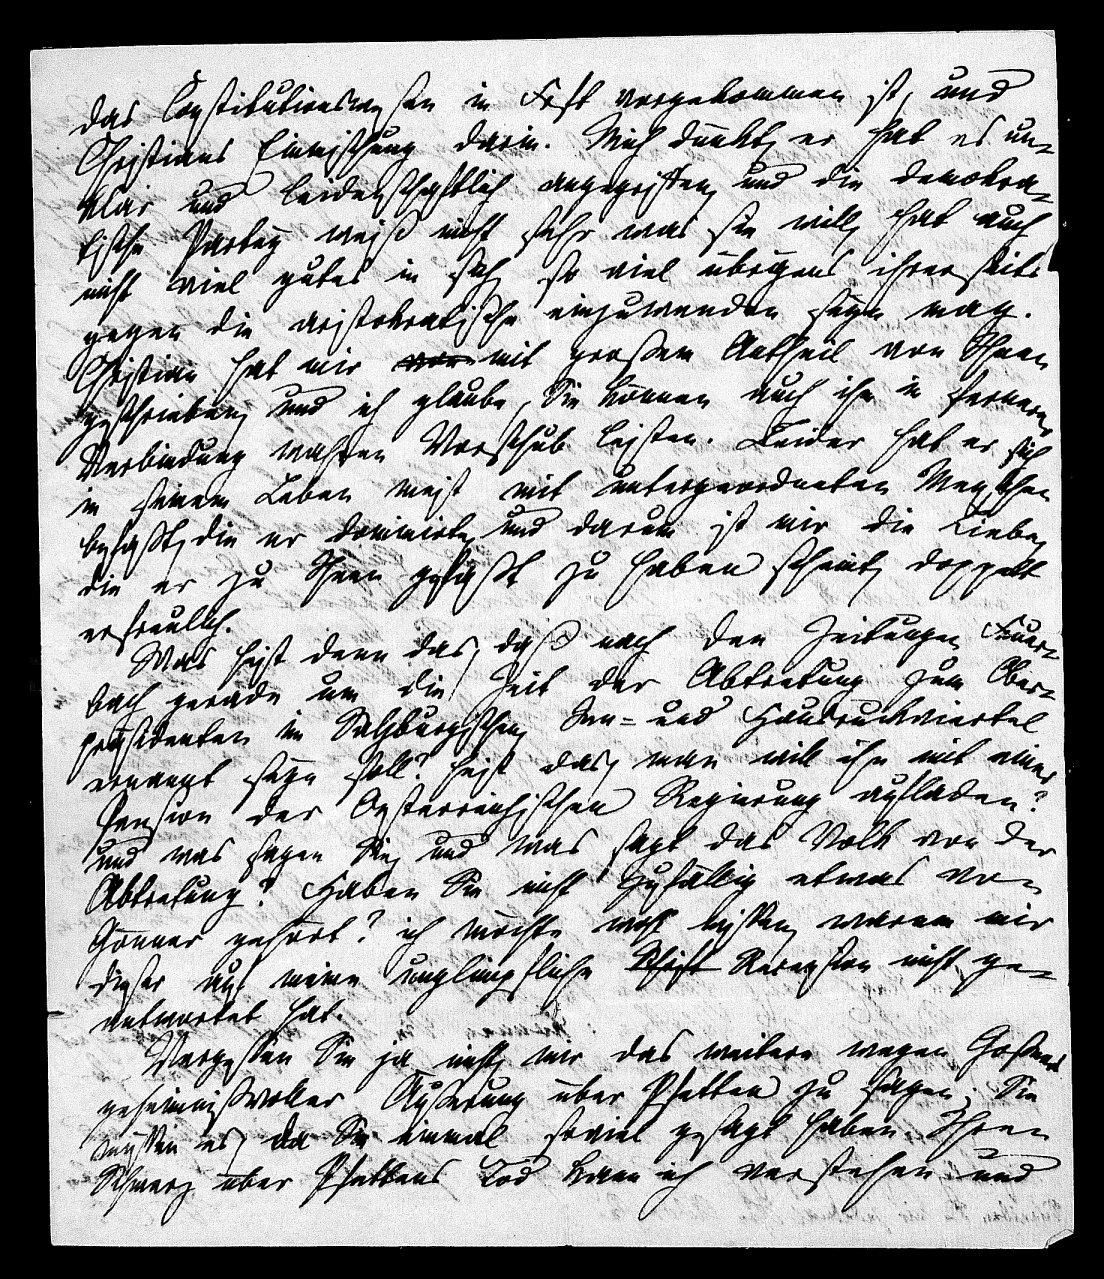 das Constitutionswesen in Frkft vorgekommen ist, und
Christians Einmischung darin. Mich dünkt, er hat es un-
klar und leidenschaftlich angegriffen, und die demokra-
tische Partey weiß nicht sehr was sie will, hat auch
nicht viel gutes in sich, so viel übrigens ihrerseits
gegen die aristokratische einzuwenden seyn mag.
Christian hat mir mit großem Antheil von Ihnen
geschrieben, und ich glaube, Sie können auch ihm in fernerer
Verbindung wahren Vorschub leisten. Leider hat er sich
in seinem Leben meist mit untergeordneten Menschen
befaßt, die er dominirte, und darum ist mir die Liebe,
die er zu Ihnen gefaßt zu haben scheint, doppelt
erfreulich.
Was heist denn das, daß nach den Zeitungen Feuer-
bach gerade um die Zeit der Abtretung zum Ober-
präsidenten im Salzburgischen, Inn- und Hausruckviertel
ernannt seyn soll? heist das, man will ihn mit einer
Pension der Oesterreichischen Regierung aufladen?
und was sagen Sie, und was sagt das Volk von der
Abtretung? Haben Sie nicht zufällig etwas von
Gönner gehört? ich möchte wohl wissen, warum mir
dieser auf meine unglimpfliche Recension nicht ge-
antwortet hat.
Vergessen Sie ja nicht, mir das weitere wegen
geheimnißvoller Äußerung über Pfetten zu sagen. Sie
müssen es, da Sie einmal soviel gesagt haben. Ihren
Schmerz über Pfettens Tod kann ich verstehen und